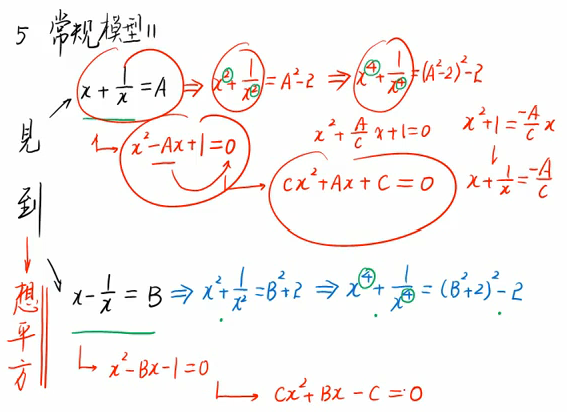 5 常规模型11
x + 1/x = A ⇒ x² + 1/x² = A²-2 ⇒ x⁴ + 1/x⁴ = (A²-2)²-2
x²-Ax+1=0
x² + A/C x+1=0
x²+1 = -A/C x
x + 1/x = -A/C
Cx²+Ax+C=0
见到
想平方
x - 1/x = B ⇒ x² + 1/x² = B²+2 ⇒ x⁴ + 1/x⁴ = (B²+2)²-2
x²-Bx-1=0
Cx²+Bx-C=0